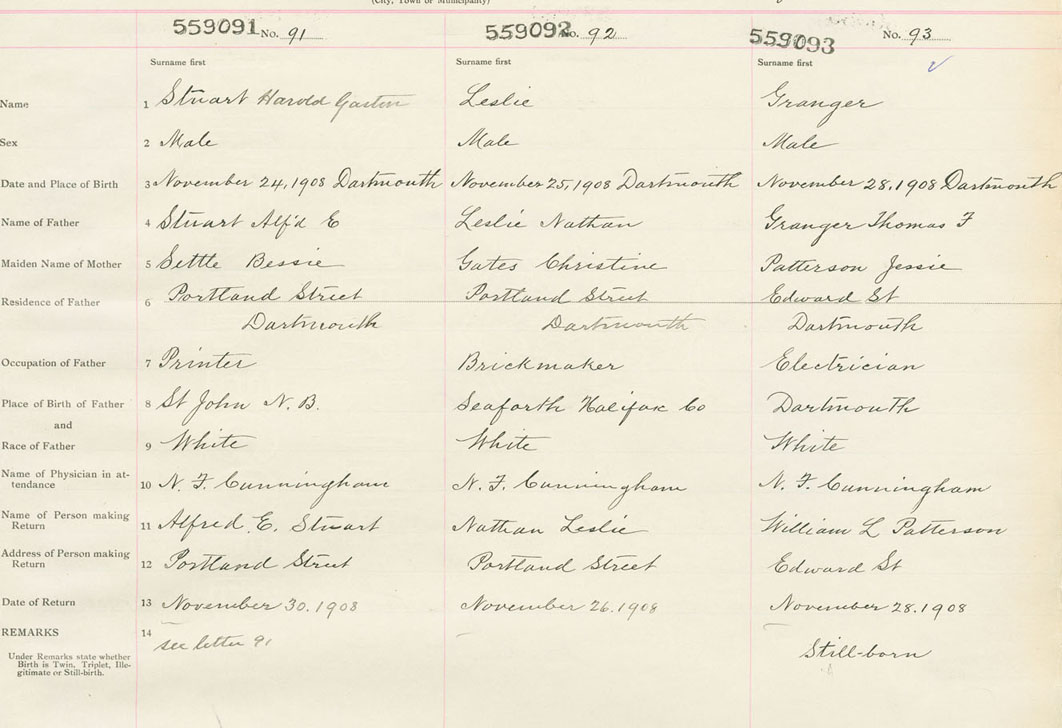 (City, Town or Municipality)
559091 No. 91 559092 No. 92 559093 No. 93
Surname first Surname first Surname first
Name 1 Stuart Harold Gaston Leslie Granger
Sex 2 Male Male Male
Date and Place of Birth 3 November 24, 1908 Dartmouth November 25, 1908 Dartmouth November 28, 1908 Dartmouth
Name of Father 4 Stuart Alf'd E Leslie Nathan Granger Thomas F
Maiden Name of Mother 5 Settle Bessie Gates Christine Patterson Jessie
Residence of Father 6 Portland Street Portland Street Edward St
Dartmouth Dartmouth Dartmouth
Occupation of Father 7 Printer Brickmaker Electrician
Place of Birth of Father 8 St John N. B. Seaforth Halifax Co Dartmouth
and
Race of Father 9 White White White
Name of Physician in at-
tendance 10 N. F. Cunningham N. F. Cunningham N. F. Cunningham
Name of Person making
Return 11 Alfred. E. Stuart Nathan Leslie William L Patterson
Address of Person making
Return 12 Portland Street Portland Street Edward St
Date of Return 13 November 30. 1908 November 26. 1908 November 28. 1908
REMARKS 14 see letter 91 Still-born
Under Remarks state whether
Birth is Twin, Triplet, Ille-
gitimate or Still-birth.